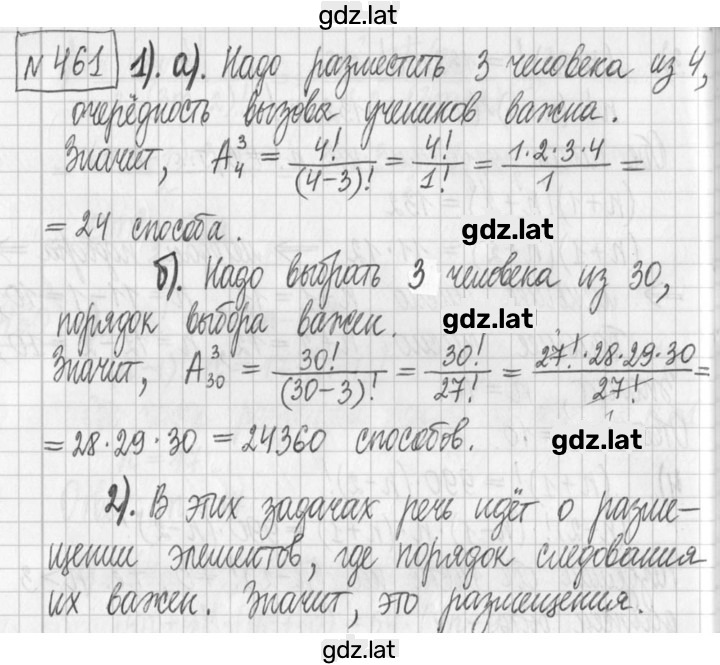 gdz.lat
№461 1). а). Надо разместить 3 человека из 4,
очерёдность вызова учеников важна.
Значит, A₄³ = 4!/(4-3)! = 4!/1! = 1·2·3·4/1 =
= 24 способа.
gdz.lat
б). Надо выбрать 3 человека из 30,
порядок выбора важен.
gdz.lat
Значит, A₃₀³ = 30!/(30-3)! = 30!/27! = 27!·28·29·30/27! =
= 28·29·30 = 24360 способов.
gdz.lat
2). В этих задачах речь идёт о разме-
щении элементов, где порядок следования
их важен. Значит, это размещения.
gdz.lat